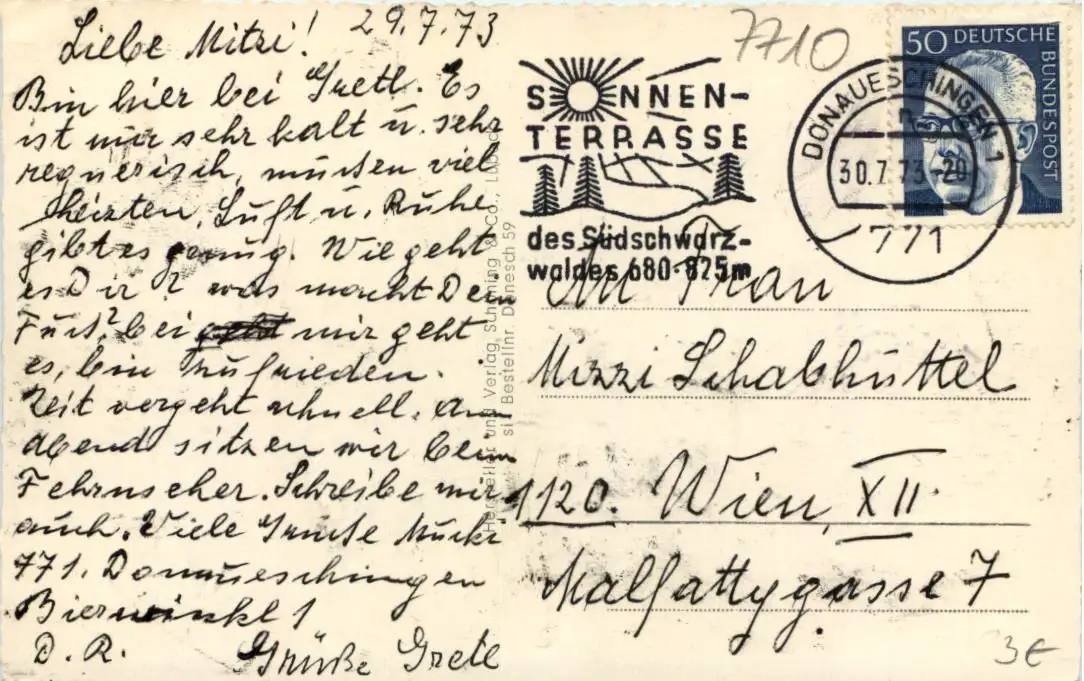 Liebe Mitzi! 29.7.73
Bin hier bei Gretl. Es
ist mir sehr kalt u. sehr
regnerisch, müssen viel
heizten, Luft u. Ruhe
gibt es genug. Wie geht
es Dir? was macht Dein
Fuß? bei mir geht
es, bin zufrieden.
Zeit vergeht schnell. Am
abend sitzen wir beim
Fehrnseher. Schreibe mir
auch. Viele Grüße Mucki
771. Donaueschingen
Bierwinkl 1
D. R. Grüße Grete
Hersteller und Verlag Schöning & Co., Lübeck
Bestellnr. Donesch 59
7710
SONNEN-
TERRASSE
des Südschwarz-
waldes 680-825m
DONAUESCHINGEN 1
30.7.73-20
771
50 DEUTSCHE
BUNDESPOST
An Frau
Mizzi Schabhüttel
1120. Wien, XII.
Malfattygasse 7
3€